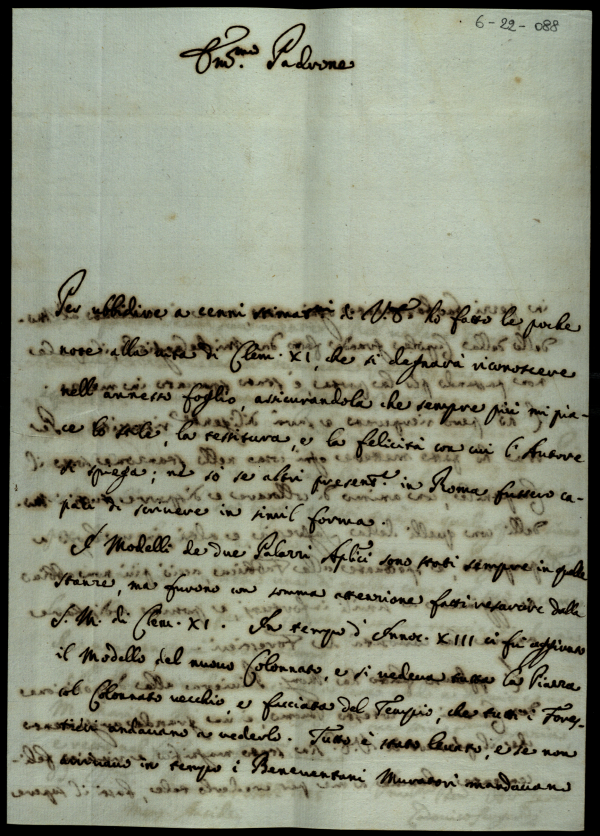 6-22-088
Em.mo Padrone
Per ubbidire a cenni stimatissi di V.E. hò fatto le poche
note alla vita di Clem. XI, che si degnarà riconoscere
nell'annesso foglio, assicurandola che sempre più mi pia-
ce lo stile, la tessitura, e la felicità con cui l'Autore
si spiega; nè sò se altri present.e in Roma fussero ca-
paci di scrivere in simil forma.
I Modelli de due Palazzi Aplici sono stati sempre in quelle
stanze, ma furono con somma attenzione fatti resarcire dalla
S. M. di Clem. XI. In tempo d'Innoc. XIII ci fù aggiunto
il Modello del nuovo Colonnato, e si vedeva tutta la Piazza
col Colonnato vecchio, e facciata del Tempio, che tutti i Fores-
tieri andavano a vederlo. Tutto è stato levato, e se non
in tempo i Beneventani Muratori mandavano